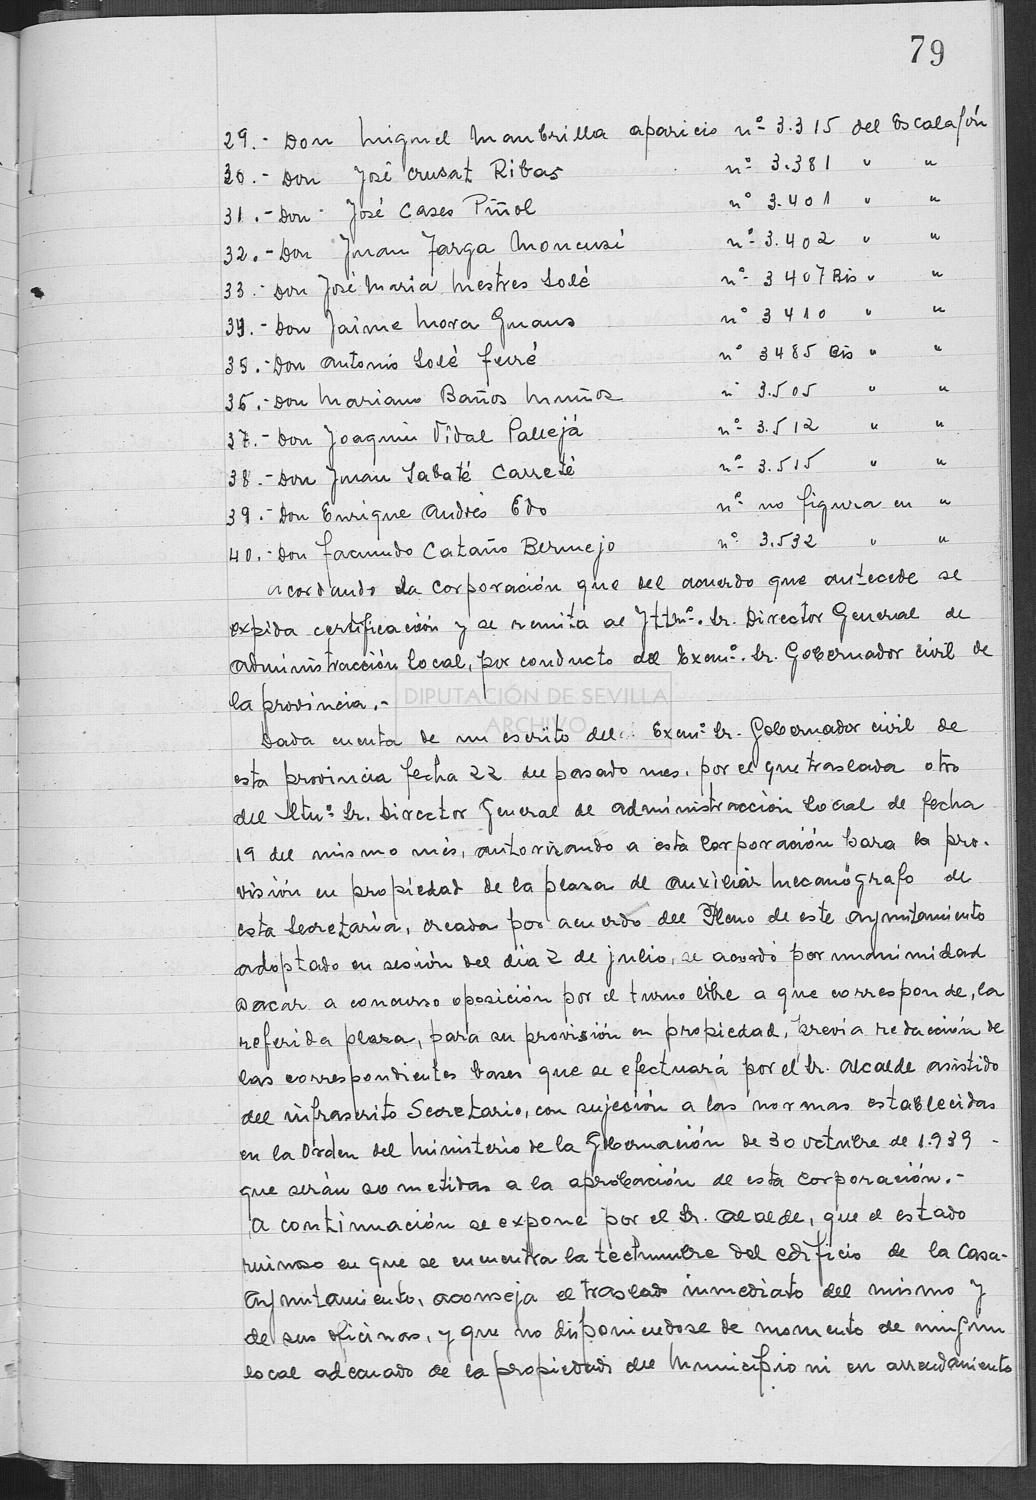 79
29.- Don Miguel Mambrilla aparicio nº 3.315 del Escalafón
30.- Don José Crusat Ribas nº 3.381 " "
31.- Don José Cases Piñol nº 3.401 " "
32.- Don Juan Farga Moncusí nº 3.402 " "
33.- Don José Maria Mestres Solé nº 3407 Bis " "
34.- Don Jaime Mora Guaus nº 3410 " "
35.- Don Antonio Solé Ferré nº 3485 Bis " "
36.- Don Mariano Baños Muñoz nº 3.505 " "
37.- Don Joaquin Vidal Pallejá nº 3.512 " "
38.- Don Juan Sabaté Carreté nº 3.515 " "
39.- Don Enrique Andrés Edo nº no figura en "
40.- Don Facundo Cataño Bermejo nº 3.532 " "
acordando la Corporación que del acuerdo que antecede se
expida certificación y se remita al Iltmº. Sr. Director General de
Administracción Local, por conducto del Excmº. Sr. Gobernador civil de
la provincia.-
DIPUTACIÓN DE SEVILLA
ARCHIVO
Dada cuenta de un escrito del Excmº Sr. Gobernador civil de
esta provincia fecha 22 del pasado mes, por el que traslada otro
del Iltmº Sr. Director General de administracción Local de fecha
19 del mismo mes, autorizando a esta Corporación para la pro-
visión en propiedad de la plaza de auxiliar mecanógrafo de
esta Secretaría, creada por acuerdo del Pleno de este Ayuntamiento
adoptado en sesión del día 2 de julio, se acordó por unanimidad
sacar a concurso oposición por el turno libre a que corresponde, la
referida plaza, para su provisión en propiedad, previa redacción de
las correspondientes bases que se efectuará por el Sr. Alcalde asistido
del infrascrito Secretario, con sujeción a las normas establecidas
en la Orden del Ministerio de la Gobernación de 30 octubre de 1.939 -
que serán sometidas a la aprobación de esta Corporación.-
A continuación se expone por el Sr. Alcalde, que el estado
ruinoso en que se encuentra la techumbre del edificio de la Casa-
Ayuntamiento, aconseja el traslado inmediato del mismo y
de sus oficinas, y que no disponiendose de momento de ningun
local adecuado de la propiedad del Municipio ni en arrendamiento